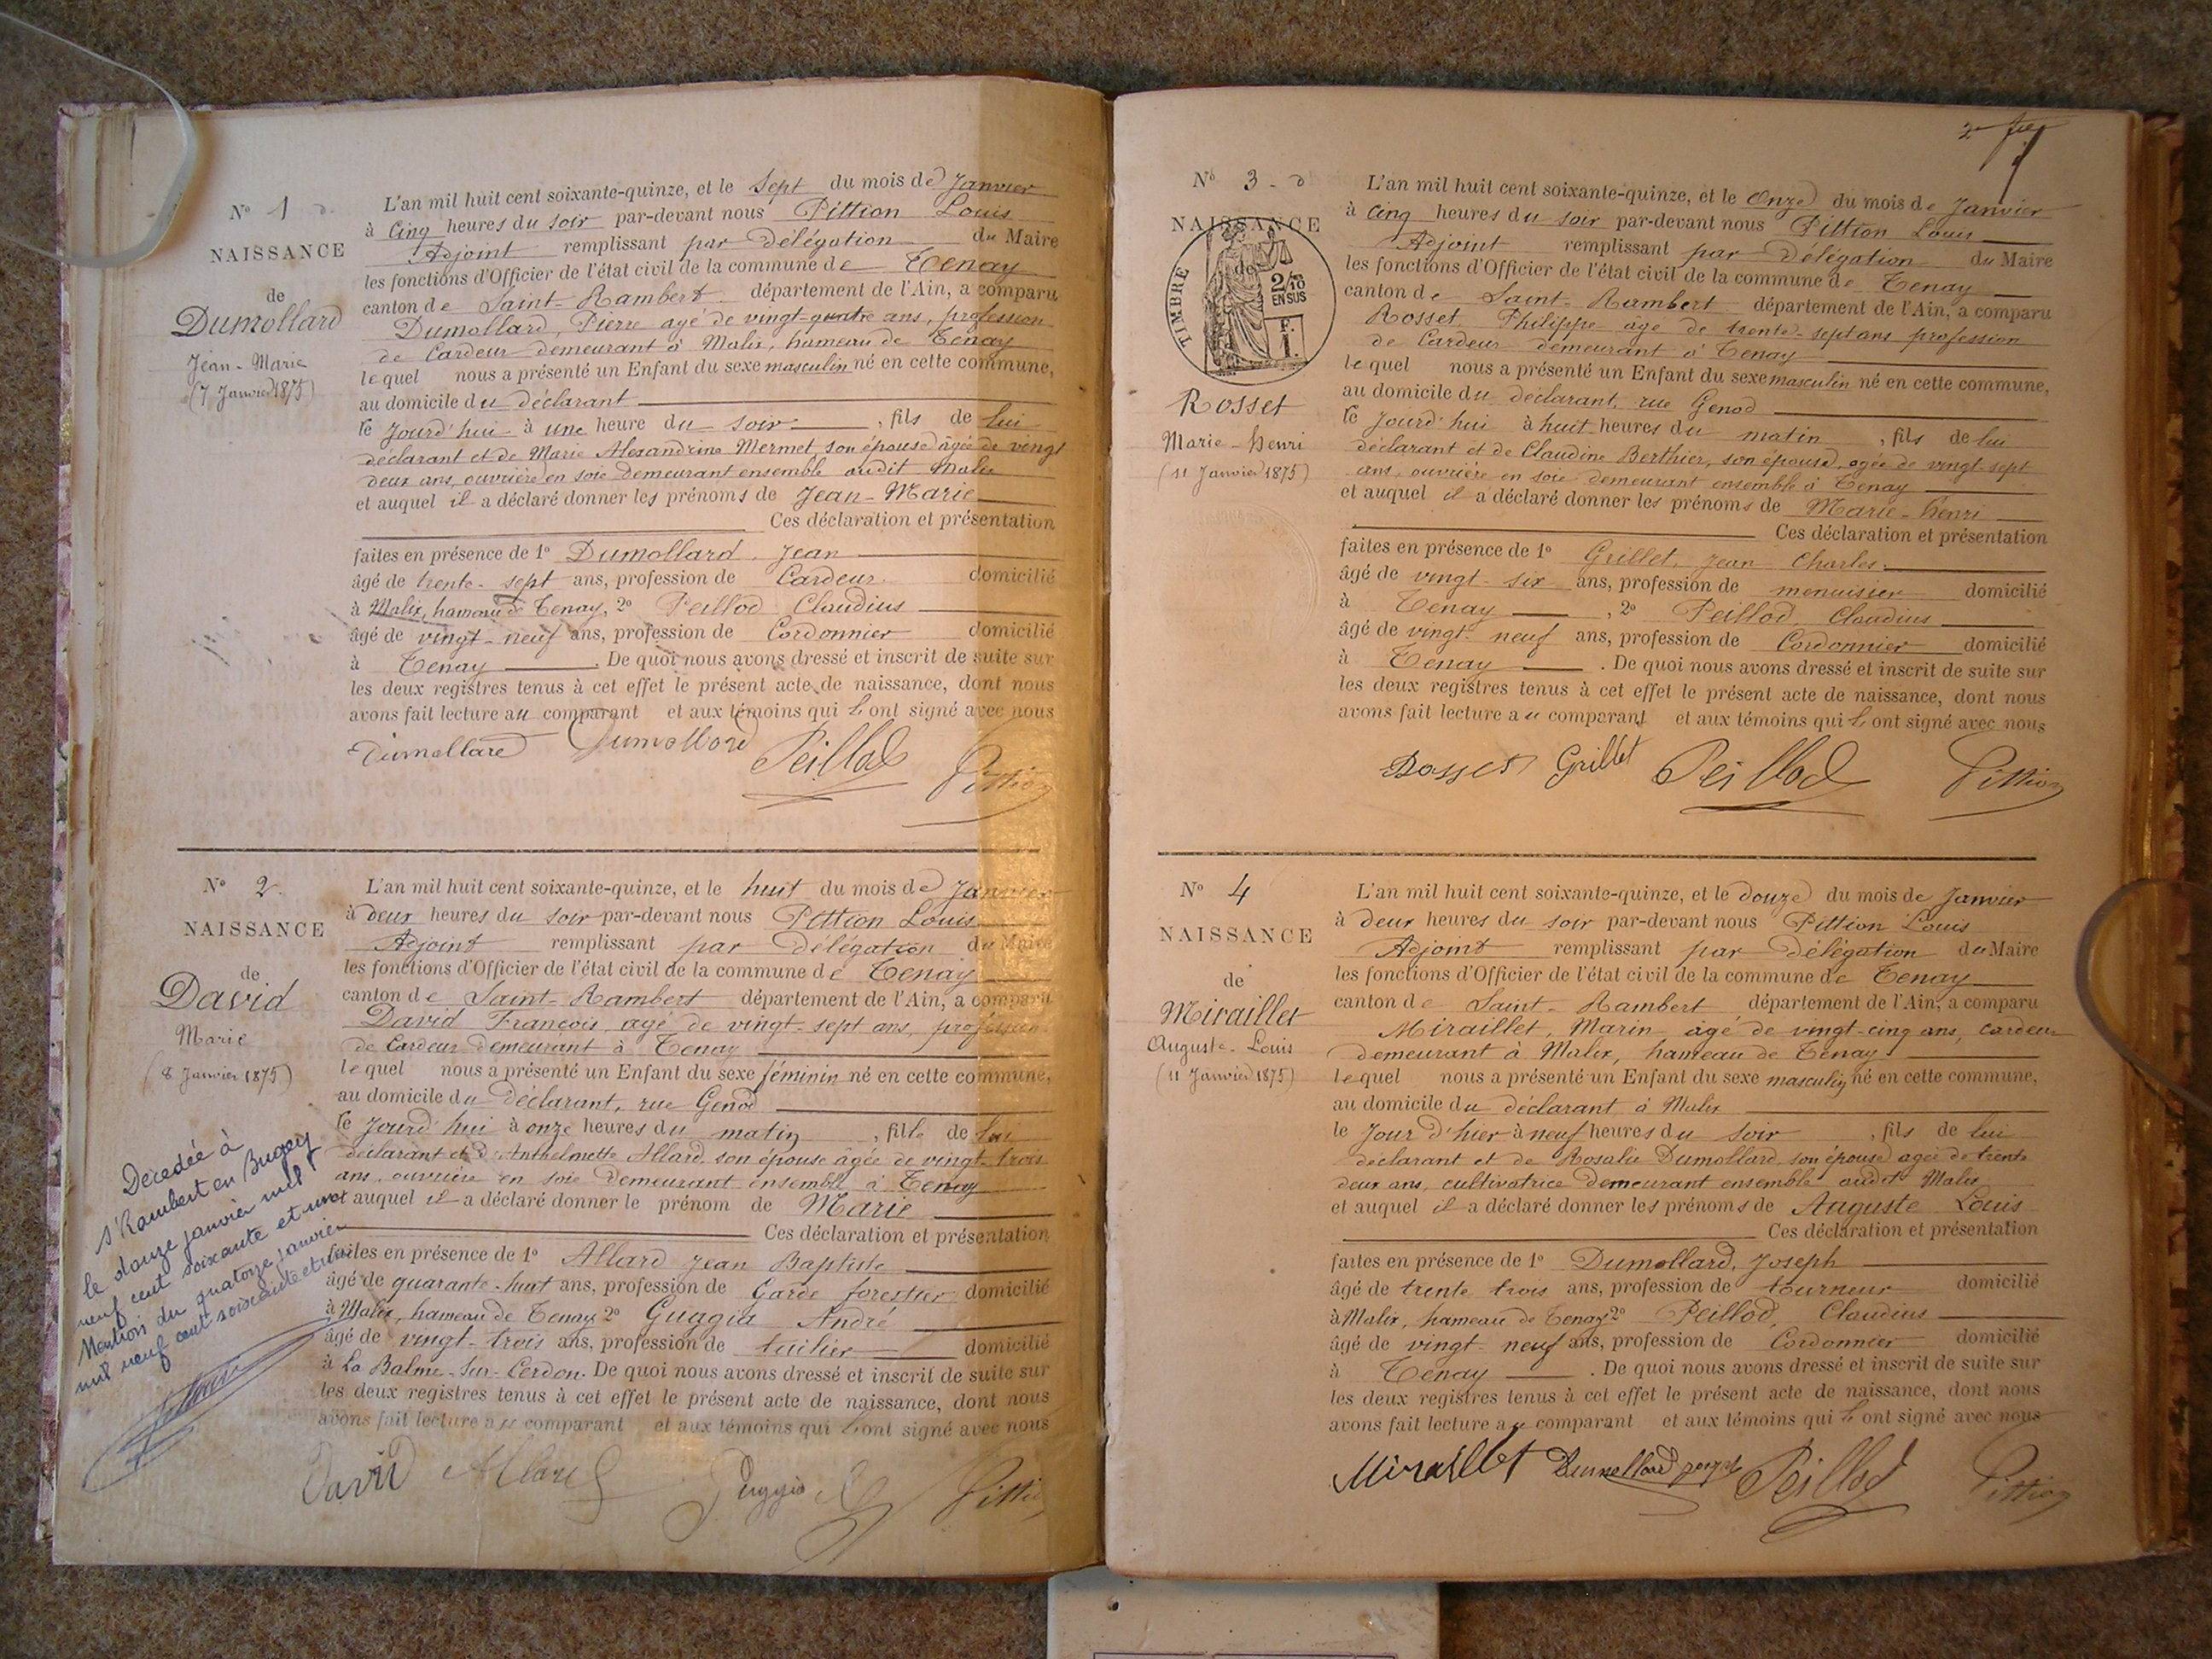 N° 1
NAISSANCE
de
Dumollard
Jean-Marie
(7 Janvier 1875)
L'an mil huit cent soixante-quinze, et le Sept du mois de Janvier
à Cinq heures du soir par-devant nous Pittion Louis
Adjoint remplissant par Délégation du Maire
les fonctions d'Officier de l'état civil de la commune de Tenay
canton de Saint-Rambert département de l'Ain, a comparu
Dumollard, Pierre agé de vingt-quatre ans, profession
de Cardeur demeurant à Malix, hameau de Tenay
lequel nous a présenté un Enfant du sexe masculin né en cette commune,
au domicile du déclarant
le Jourd'hui à une heure du soir, fils de lui
déclarant et de Marie Alexandrine Mermet son épouse âgée de vingt
deux ans, ouvrière en soie demeurant ensemble audit Malix
et auquel il a déclaré donner les prénoms de Jean-Marie
Ces déclaration et présentation
faites en présence de 1° Dumollard, Jean
âgé de trente-sept ans, profession de Cardeur domicilié
à Malix, hameau de Tenay, 2° Peillod Claudius
âgé de vingt-neuf ans, profession de Cordonnier domicilié
à Tenay. De quoi nous avons dressé et inscrit de suite sur
les deux registres tenus à cet effet le présent acte de naissance, dont nous
avons fait lecture au comparant et aux témoins qui l'ont signé avec nous
Dumollard Dumollard Peillod Pittion
N° 2
NAISSANCE
de
David
Marie
(8 Janvier 1875)
Décédée à
St Rambert en Bugey
le douze janvier mil
neuf cent soixante et un
Mention du quatorze janvier
mil neuf cent soixante et un
L'an mil huit cent soixante-quinze, et le huit du mois de Janvier
à deux heures du soir par-devant nous Pittion Louis
Adjoint remplissant par Délégation du Maire
les fonctions d'Officier de l'état civil de la commune de Tenay
canton de Saint-Rambert département de l'Ain, a comparu
David François, agé de vingt-sept ans, profession
de Cardeur demeurant à Tenay
lequel nous a présenté un Enfant du sexe féminin né en cette commune,
au domicile du déclarant, rue Genod
le Jourd'hui à onze heures du matin, fille de lui
déclarant et d'Anthelmette Allard, son épouse âgée de vingt-trois
ans, ouvrière en soie demeurant ensemble à Tenay
et auquel il a déclaré donner le prénom de Marie
Ces déclaration et présentation
faites en présence de 1° Allard Jean Baptiste
âgé de quarante-huit ans, profession de Garde forestier domicilié
à Malix, hameau de Tenay 2° Guggia André
âgé de vingt-trois ans, profession de tuilier domicilié
à La Balme-Sur-Cerdon. De quoi nous avons dressé et inscrit de suite sur
les deux registres tenus à cet effet le présent acte de naissance, dont nous
avons fait lecture au comparant et aux témoins qui l'ont signé avec nous
David Allard Guggia Pittion
2e
N° 3
NAISSANCE
de
TIMBRE
2/10
EN SUS
F.
1.
Rosset
Marie-Henri
(11 Janvier 1875)
L'an mil huit cent soixante-quinze, et le Onze du mois de Janvier
à Cinq heures du soir par-devant nous Pittion Louis
Adjoint remplissant par Délégation du Maire
les fonctions d'Officier de l'état civil de la commune de Tenay
canton de Saint-Rambert département de l'Ain, a comparu
Rosset, Philippe âgé de trente-sept ans profession
de Cardeur demeurant à Tenay
lequel nous a présenté un Enfant du sexe masculin né en cette commune,
au domicile du déclarant, rue Genod
le Jourd'hui à huit heures du matin, fils de lui
déclarant et de Claudine Berthier, son épouse, agée de vingt-sept
ans, ouvrière en soie demeurant ensemble à Tenay
et auquel il a déclaré donner les prénoms de Marie-Henri
Ces déclaration et présentation
faites en présence de 1° Grillet, Jean Charles
âgé de vingt-six ans, profession de menuisier domicilié
à Tenay, 2° Peillod, Claudius
âgé de vingt-neuf ans, profession de Cordonnier domicilié
à Tenay. De quoi nous avons dressé et inscrit de suite sur
les deux registres tenus à cet effet le présent acte de naissance, dont nous
avons fait lecture au comparant et aux témoins qui l'ont signé avec nous
Rosset Grillet Peillod Pittion
N° 4
NAISSANCE
de
Miraillet
Auguste-Louis
(11 Janvier 1875)
L'an mil huit cent soixante-quinze, et le douze du mois de Janvier
à deux heures du soir par-devant nous Pittion Louis
Adjoint remplissant par Délégation du Maire
les fonctions d'Officier de l'état civil de la commune de Tenay
canton de Saint-Rambert département de l'Ain, a comparu
Miraillet, Marin âgé de vingt-cinq ans, cardeur
demeurant à Malix, hameau de Tenay
lequel nous a présenté un Enfant du sexe masculin né en cette commune,
au domicile du déclarant à Malix
le Jour d'hier à neuf heures du soir, fils de lui
déclarant et de Rosalie Dumollard, son épouse agée de trente
deux ans, cultivatrice demeurant ensemble audit Malix
et auquel il a déclaré donner les prénoms de Auguste Louis
Ces déclaration et présentation
faites en présence de 1° Dumollard, Joseph
âgé de trente trois ans, profession de tourneur domicilié
à Malix, hameau de Tenay 2° Peillod, Claudius
âgé de vingt-neuf ans, profession de Cordonnier domicilié
à Tenay. De quoi nous avons dressé et inscrit de suite sur
les deux registres tenus à cet effet le présent acte de naissance, dont nous
avons fait lecture au comparant et aux témoins qui l'ont signé avec nous
Miraillet Dumollard Peillod Pittion